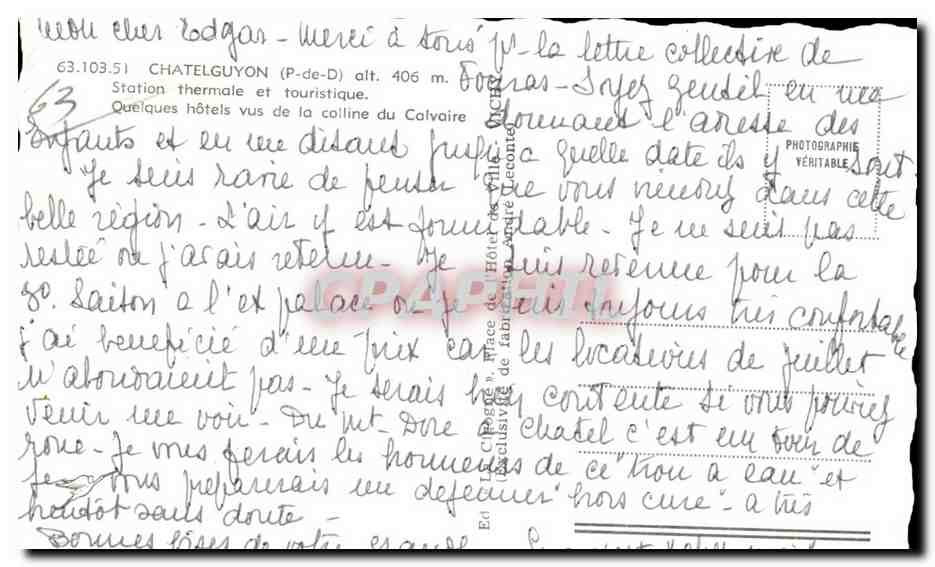 Mon cher Edgar - Merci à tous pr la lettre collective de
63.103.51 CHATELGUYON (P-de-D) alt. 406 m.
Station thermale et touristique.
Quelques hôtels vus de la colline du Calvaire
63
- Soyez gentil en me
donnant l'adresse des
enfants et en me disant jusqu'a quelle date ils y sont.
PHOTOGRAPHIE
VÉRITABLE
Je suis ravie de penser que vous vivez dans cette
belle région - L'air y est formidable - Je ne suis pas
restée où j'avais retenu - Je suis retenue pour la
saison a l'ex palace où je suis toujours très confortable
CPAPHIL
j'ai beneficié d'un prix car les locations de juillet
n'abondaient pas - Je serais bien contente si vous pouviez
venir me voir - Du Mt-Dore a Chatel c'est un tour de
roue - Je vous ferais les honneurs de ce "trou a eau" et
je vous préparerais un dejeuner "hors cure" - a très
bientôt sans doute -
Bonnes bises de votre grande
Ed. La Cigogne ». Place de l'Hôtel de Ville. VICHY
(Exclusivité de fabrication André Leconte)